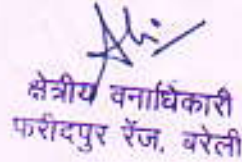 क्षेत्रीय वनाधिकारी
फरीदपुर रेंज, बरेली